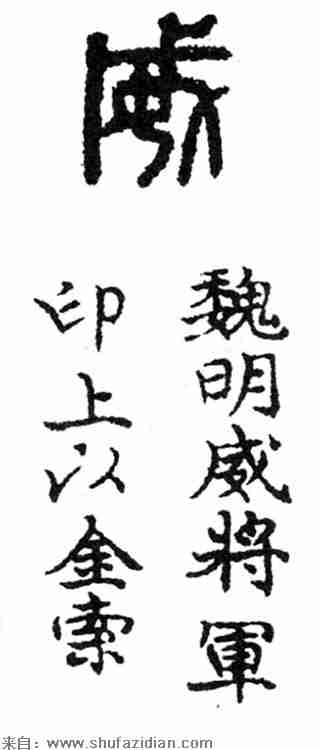 威
魏明威將軍
印上以金索
来自：www.shufazidian.com